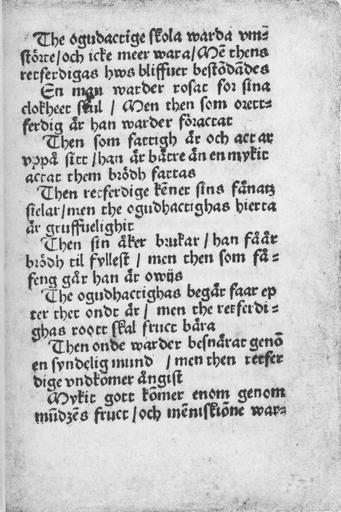 The ogudactige skola warda vm̄-
störte/och icke meer wara/Mē thens
retferdigas hws bliffuer bestōdādes
En man warder rosat for sina
clokheet skul / Men then som orett-
ferdig är han warder föractat
Then som fattigh är och act ar
vppå sitt/han är bätre än en mykit
actat them brödh fattas
Then retferdige kēner sins fänatz
sielar/men the ogudhactighas hierta
är gruffuelighit
Then sin åker brukar/han fåår
brödh til fyllest / men then som få-
feng går han är owijs
The ogudhactighas begär faar ep
ter thet ondt är/ men the retferdi-
ghas roott skal fruct bära
Then onde warder besnärat genō
en syndelig mund /men then retfer
dige vndkomer ångist
Mykit gott kōmer enom genom
mūdzēs fruct/och mēniskiōne war-